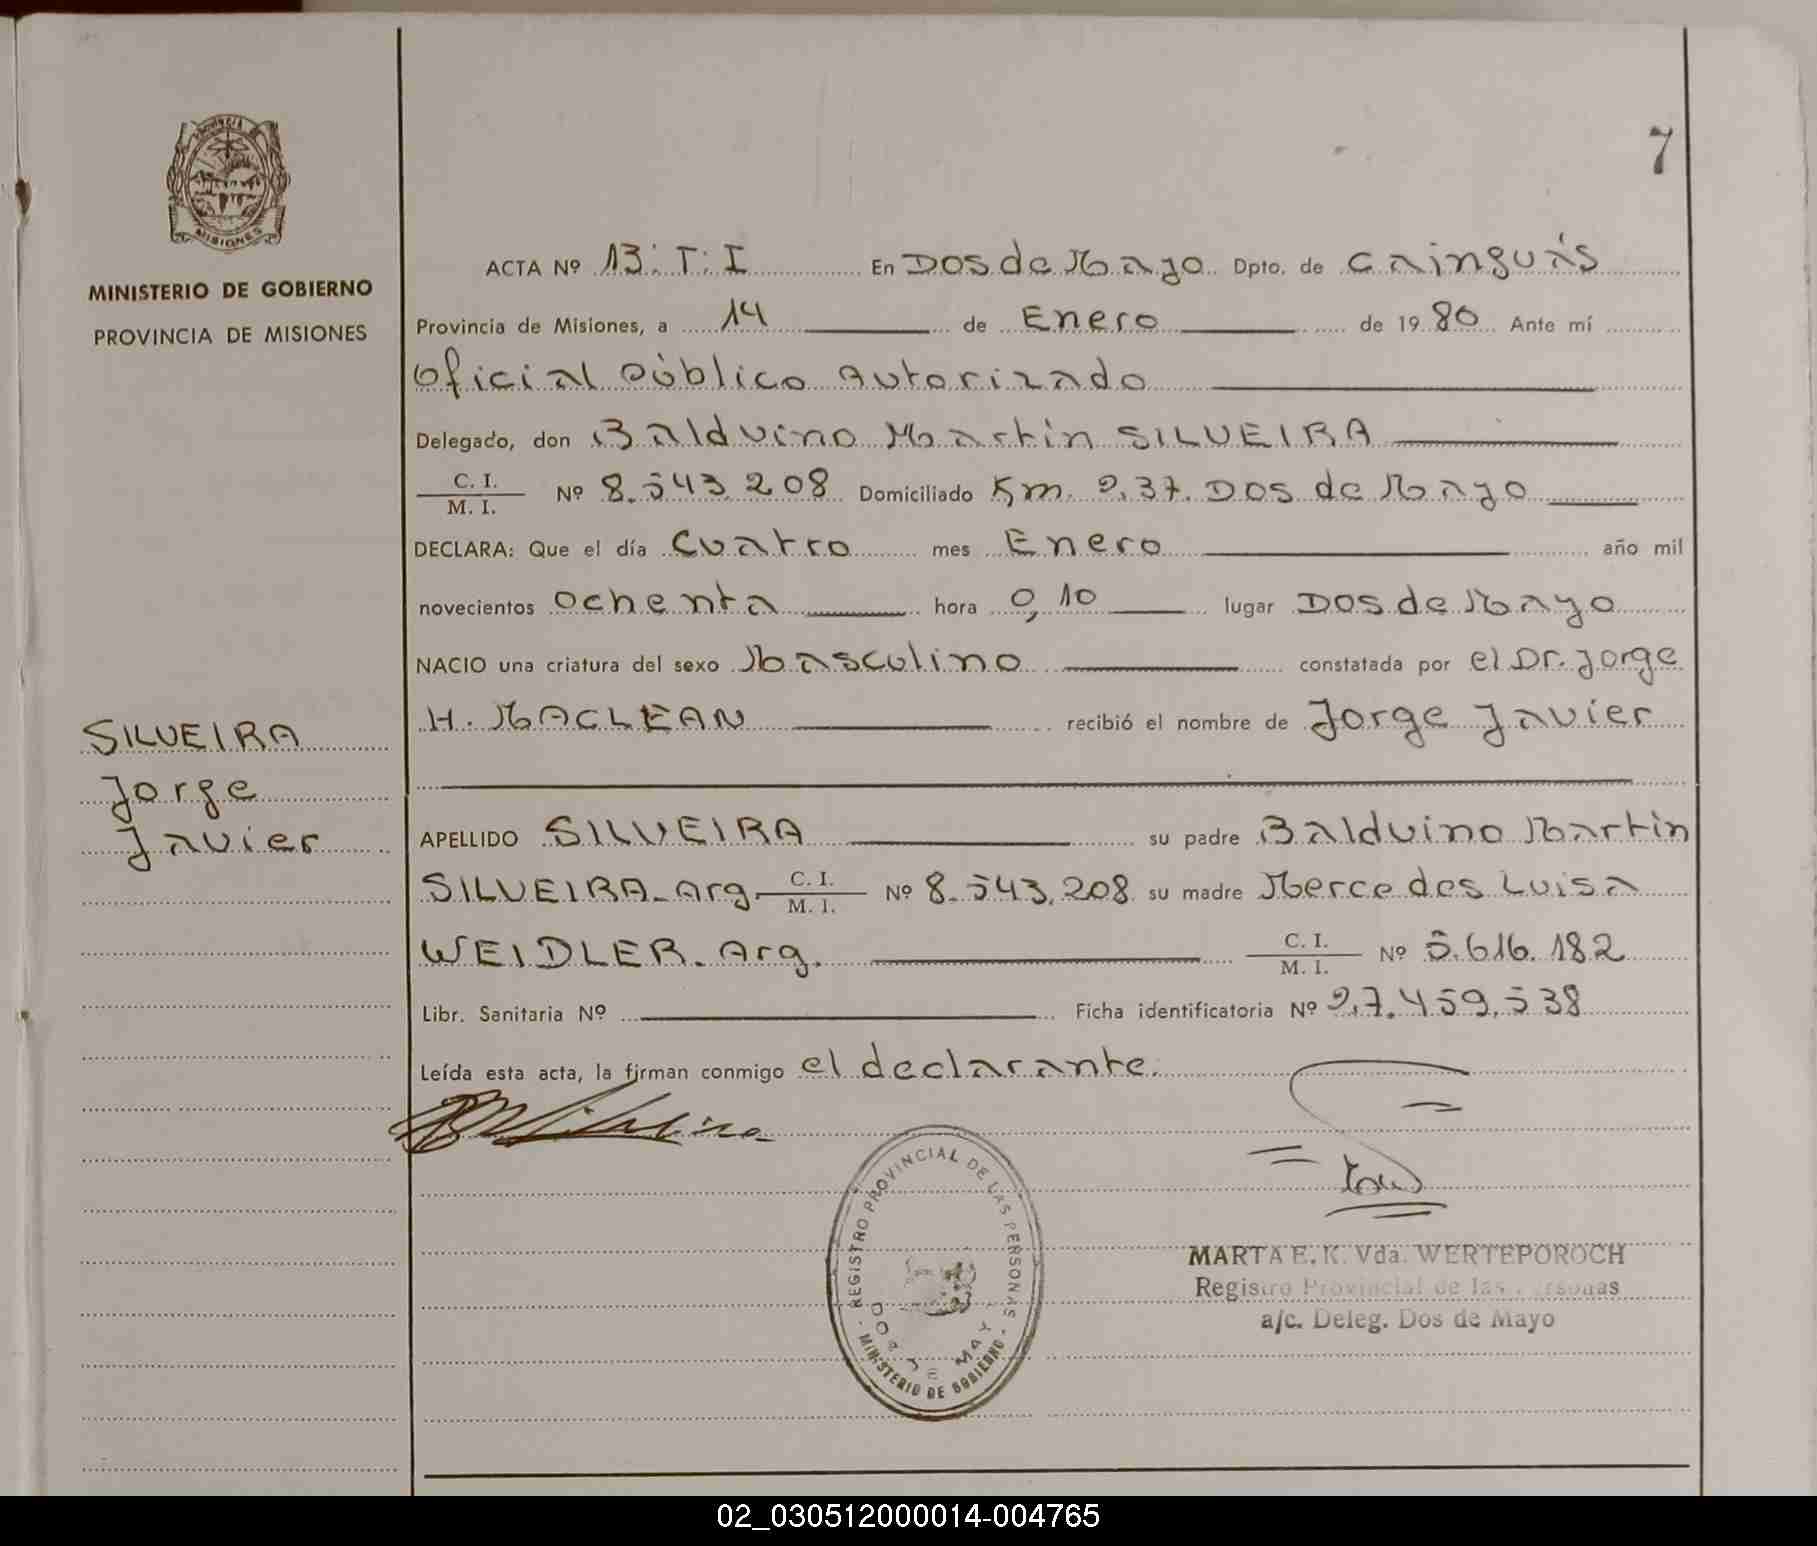 7
PROVINCIA DE
MISIONES
MINISTERIO DE GOBIERNO
PROVINCIA DE MISIONES
SILVEIRA
Jorge
Javier
ACTA Nº 13: T: I En Dos de Mayo Dpto. de Cainguás
Provincia de Misiones, a 14 de Enero de 1980 Ante mí
Oficial Público Autorizado
Delegado, don Balduino Martin SILVEIRA
C. I.
M. I. Nº 8.543.208 Domiciliado Km. 237. Dos de Mayo
DECLARA: Que el día Cuatro mes Enero año mil
novecientos ochenta hora 0,10 lugar Dos de Mayo
NACIO una criatura del sexo Masculino constatada por el Dr. Jorge
H. MACLEAN recibió el nombre de Jorge Javier
APELLIDO SILVEIRA su padre Balduino Martin
SILVEIRA - Arg. C. I.
M. I. Nº 8.543.208 su madre Mercedes Luisa
WEIDLER. Arg. C. I.
M. I. Nº 5.616.182
Libr. Sanitaria Nº Ficha identificatoria Nº 27.459.538
Leída esta acta, la firman conmigo el declarante.
REGISTRO PROVINCIAL DE LAS PERSONAS
DOS DE MAYO
MINISTERIO DE GOBIERNO
MARTA E. K. Vda. WERTEPOROCH
Registro Provincial de las Personas
a/c. Deleg. Dos de Mayo
02_030512000014-004765